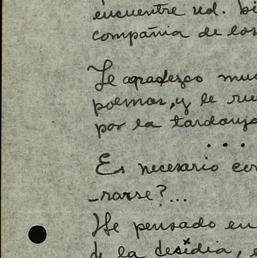 encuentre ud. bi
compañia de los
Le agradezco muc
poemas, y le rue
por la tardanza
...
Es necesario
-rarse?...
He pensado en
de la desidia, e